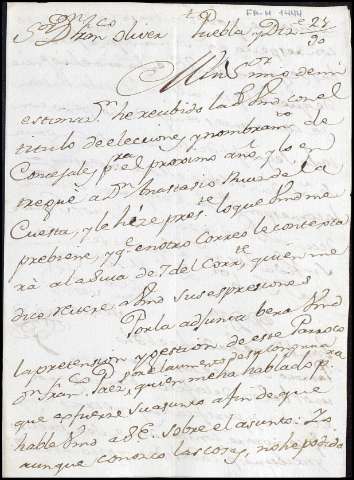 FA-H 1444
Sor Dn Franco Oliver Puebla y Dizre 24/90
Mui Sor mio de mi
estimazn he recibido la de Vmd con el
titulo de elecciones, y nombramto de
Concejales pra el proximo año, y lo en
tregué a Dn Anastasio Ruiz de la
Cuesta, y le hize preste lo que Vmd me
prebiene, y qe en otro Correo le contexta
rá a la suia de 7 del Corrte, quien me
dice reitere a Vmd sus espresiones
Por la adjunta bera Vmd
la pretension y gestion de este Parroco
Dn Franco Saez, quien me ha hablado pra
que esfuerze su asunto a fin de que
hable Vmd a S.E. sobre el asunto: Yo
aunque conozco las cosas, no he podido